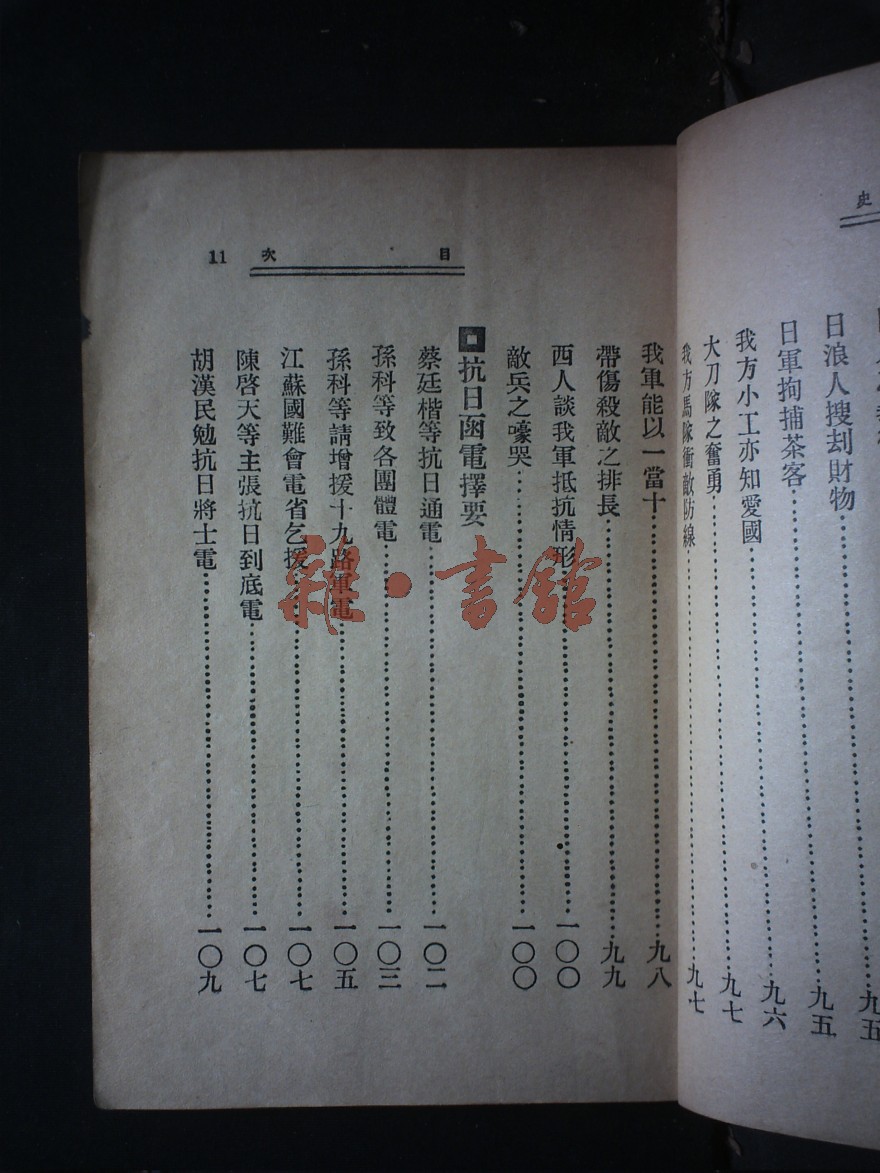 史
日浪人搜刦財物……九五
日軍拘捕茶客……九六
我方小工亦知愛國……九七
大刀隊之奮勇……九七
我方馬隊衝敵防線
目次 11
我軍能以一當十……九八
帶傷殺敵之排長……九九
西人談我軍抵抗情形……一〇〇
敵兵之嚎哭……一〇〇
抗日函電擇要
蔡廷楷等抗日通電……一〇二
孫科等致各團體電……一〇三
孫科等請增援十九路軍電……一〇五
江蘇國難會電省乞援……一〇七
陳啓天等主張抗日到底電……一〇七
胡漢民勉抗日將士電……一〇九
雜·書館